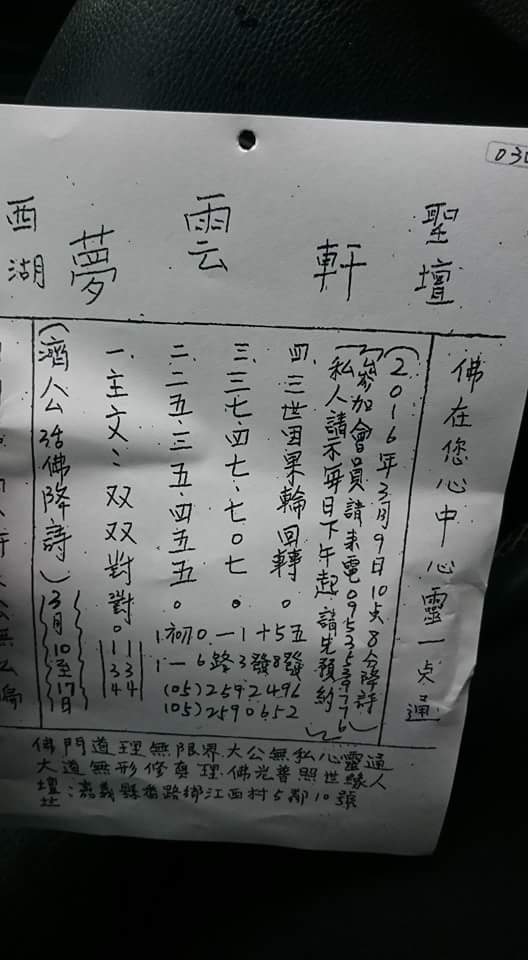 030
西湖
夢雲軒
聖壇
佛在您心中心靈一点通
(濟公活佛降詩)
3月10至17日
一.主文:双双對對。
11
33
44
二.二五.三五.四五五。
三.三七.四七.七0七。
四.三世因果輪回轉。
(2016年3月9日10点8分降詩)
(參加會員請来電0953539776)
私人請示每日下午起請先預約
1.初0.一1十5五
1.一6路3發8發
(05)2592496
(05)2590652
佛門道理無限界大公無私心靈通
大道無形修真理.佛光普照世緣人
壇址:嘉義縣番路鄉江西村5鄰10號